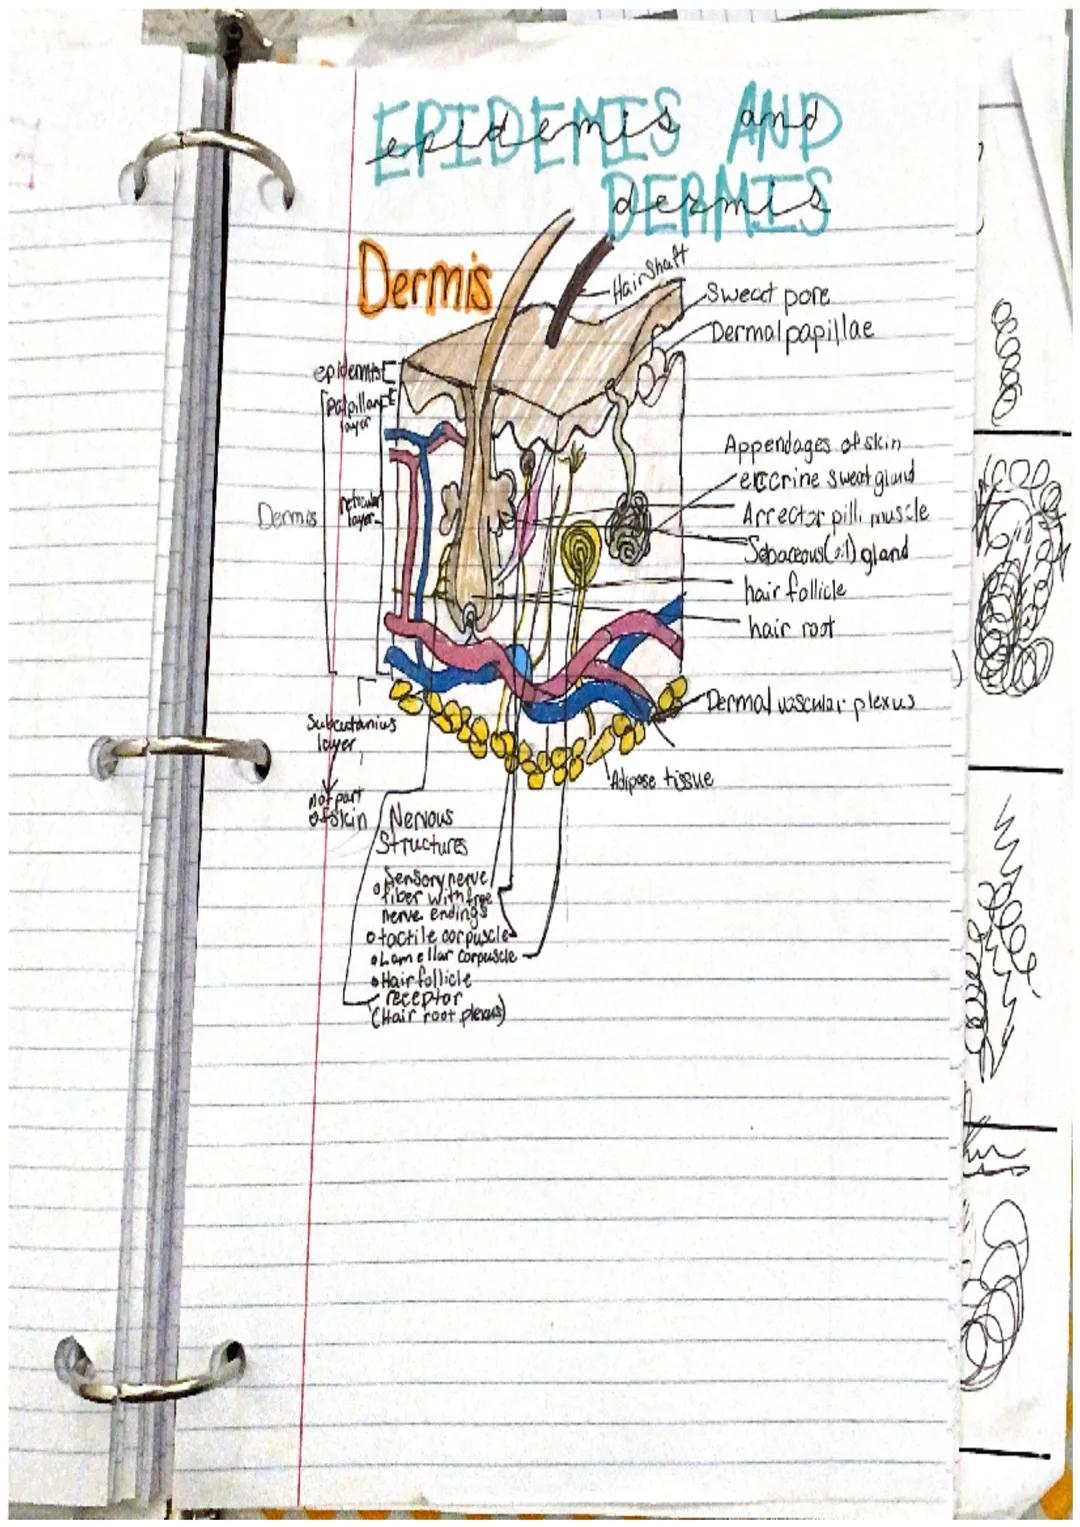 EPIDEMIS AND
epidemis and
DERMIS
dermis
Dermis
Hair Shaft
Sweat pore
Dermal papillae
epidermis
papillary
layer
Dermis
reticular
layer
Appendages of skin
eccrine sweat gland
Arrector pilli muscle
Sebaceous (oil) gland
hair follicle
hair root
Dermal vascular plexus
Subcutanius
layer
not part
of skin
Adipose tissue
Nervous
Structures
Sensory nerve
fiber with free
nerve endings
tactile corpuscle
Lamellar corpuscle
Hair follicle
receptor
(Hair root plexus)